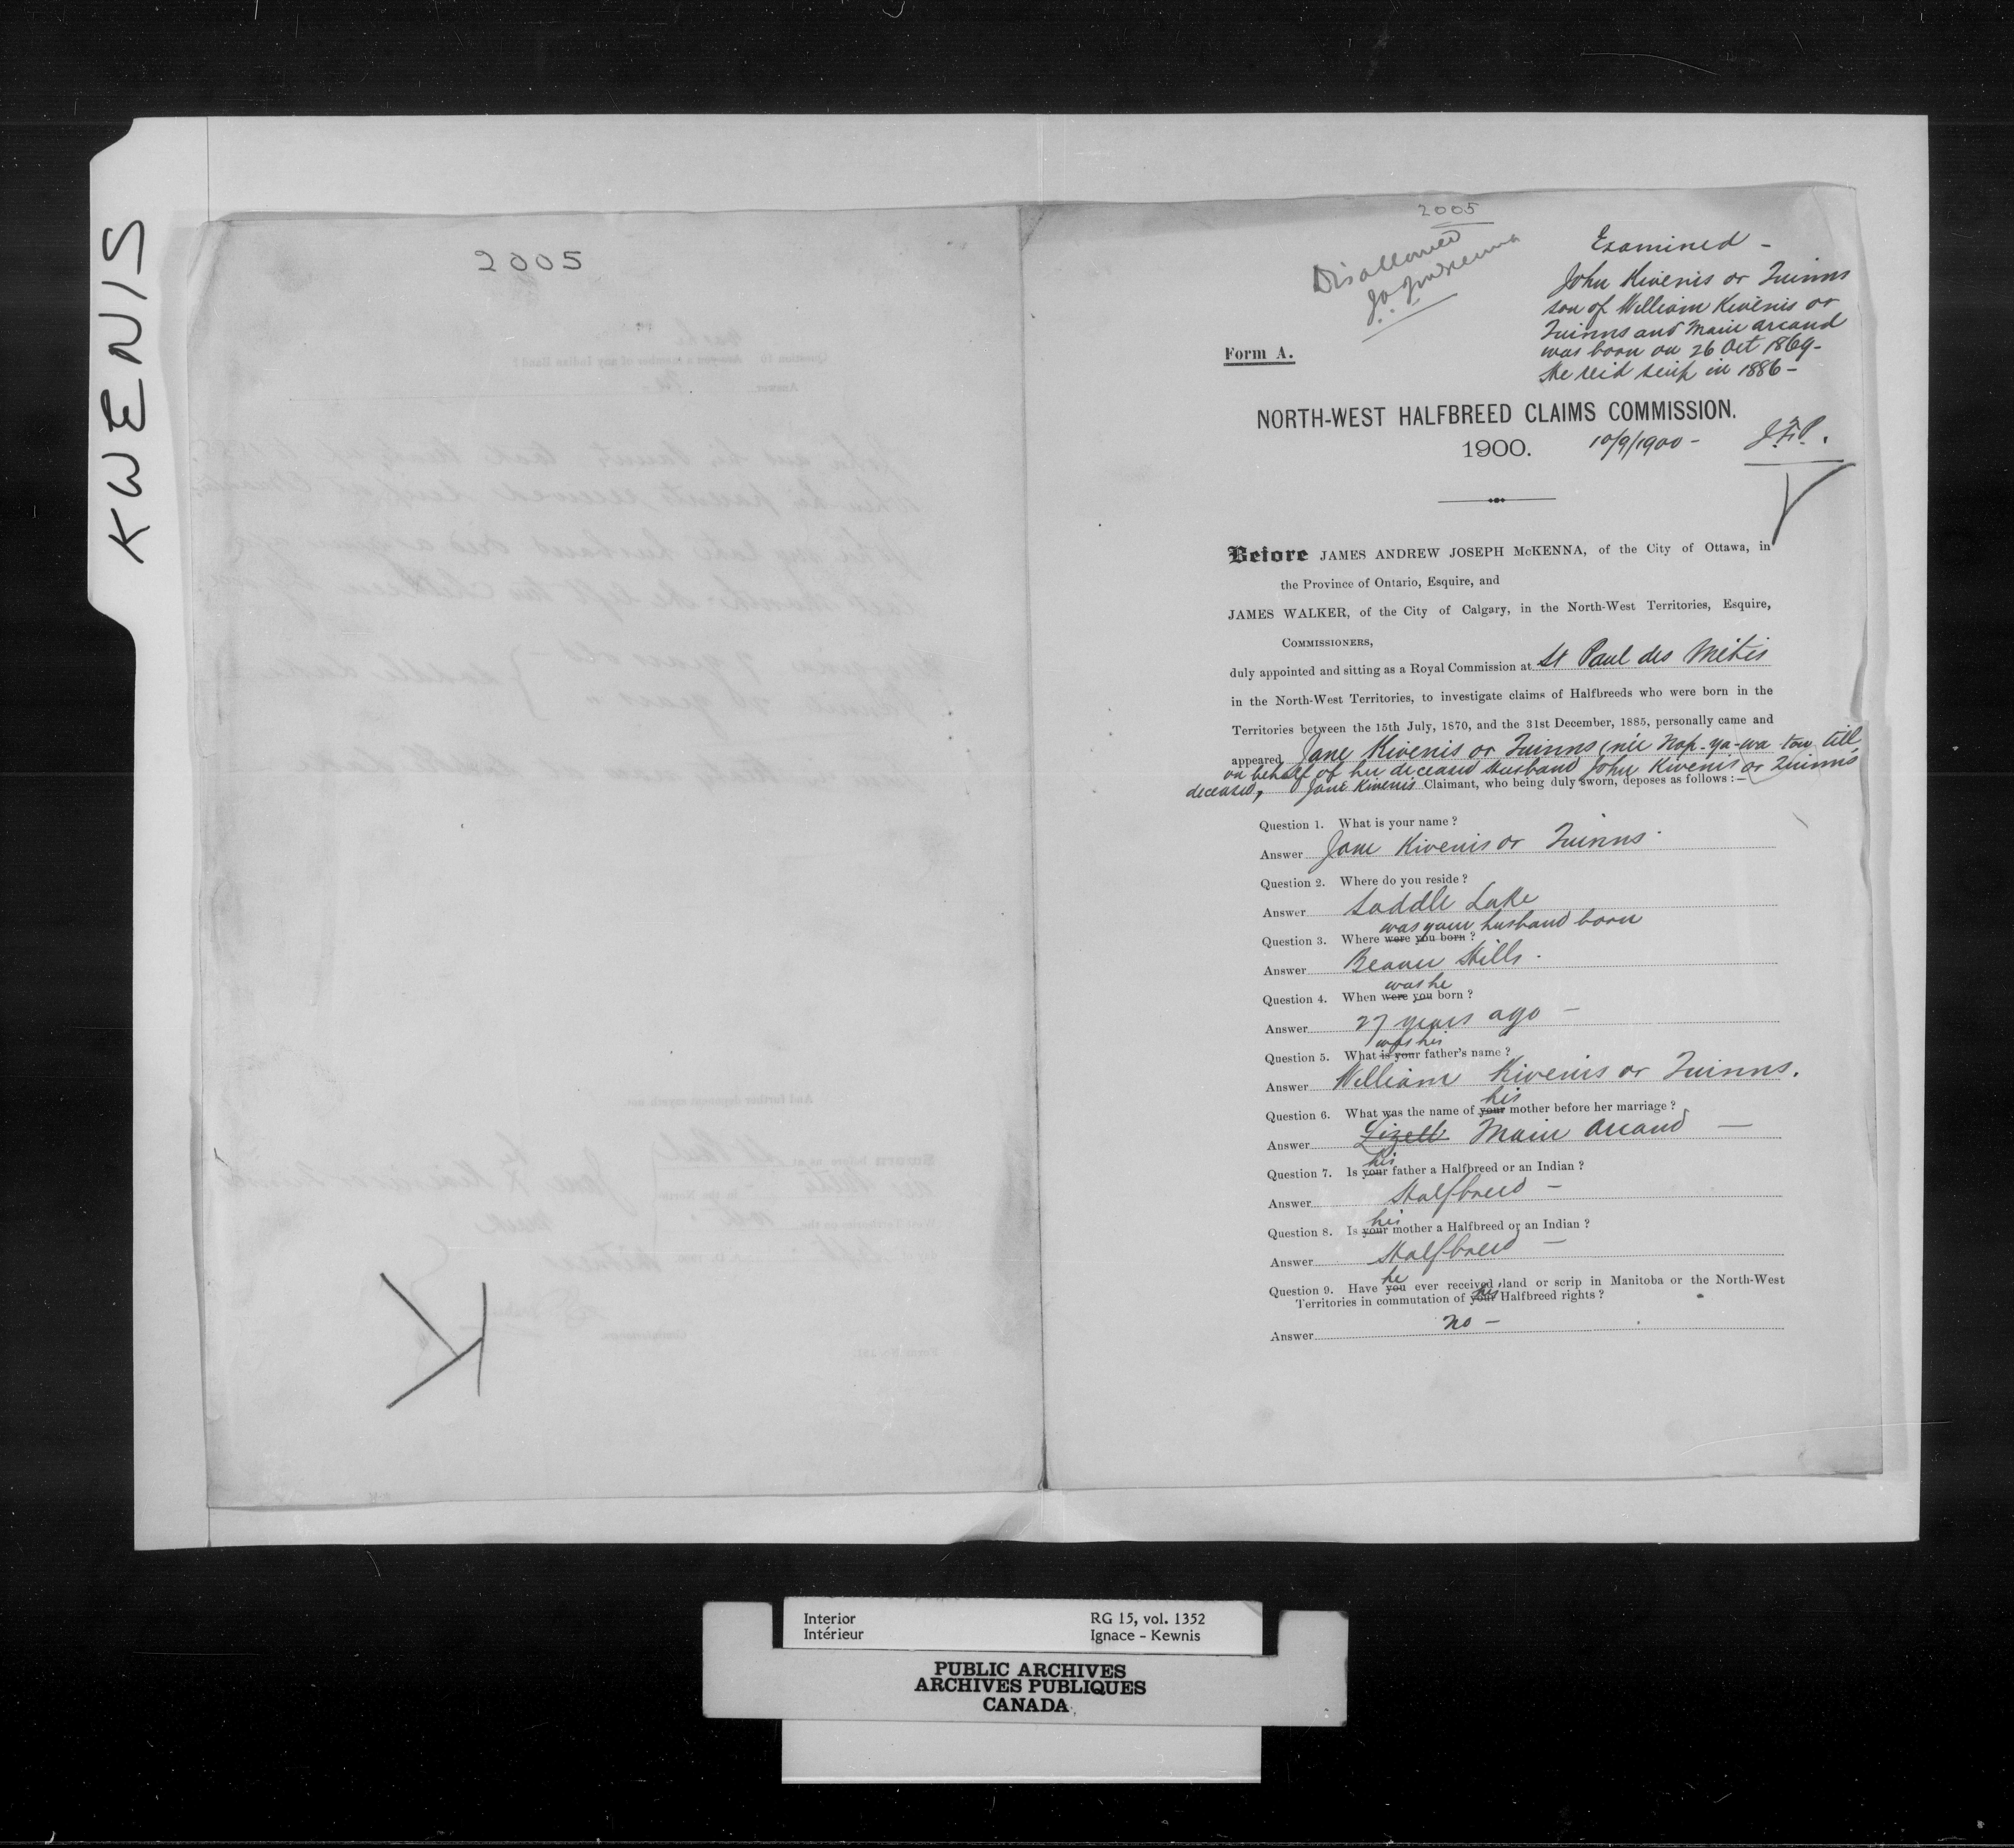 KWENIS
2005
2005
Disallowed
Examined -
John Kwenis or Quinns
son of William Kwenis or
Quinns and Marie Arcand
was born on 26 Oct 1869 -
He rec'd scrip in 1886 -
Form A.
NORTH-WEST HALFBREED CLAIMS COMMISSION.
1900. 10/9/1900 -
Before JAMES ANDREW JOSEPH McKENNA, of the City of Ottawa, in
the Province of Ontario, Esquire, and
JAMES WALKER, of the City of Calgary, in the North-West Territories, Esquire,
COMMISSIONERS,
duly appointed and sitting as a Royal Commission at St Paul des Métis
in the North-West Territories, to investigate claims of Halfbreeds who were born in the
Territories between the 15th July, 1870, and the 31st December, 1885, personally came and
appeared Jane Kwenis or Quinns (née Nap-ya-wa-tow-till
on behalf of her deceased husband John Kwenis or Quinns
deceased, Jane Kwenis Claimant, who being duly sworn, deposes as follows :-
Question 1. What is your name ?
Answer Jane Kwenis or Quinns.
Question 2. Where do you reside ?
Answer Saddle Lake
was your husband born
Question 3. Where were you born ?
Answer Beaver Hills.
was he
Question 4. When were you born ?
Answer 27 years ago -
was his
Question 5. What is your father's name ?
Answer William Kwenis or Quinns.
his
Question 6. What was the name of your mother before her marriage ?
Answer Lizette Marie Arcand -
his
Question 7. Is your father a Halfbreed or an Indian ?
Answer Halfbreed -
his
Question 8. Is your mother a Halfbreed or an Indian ?
Answer Halfbreed -
he
Question 9. Have you ever received land or scrip in Manitoba or the North-West
Territories in commutation of your his Halfbreed rights ?
Answer No -
K
Interior RG 15, vol. 1352
Intérieur Ignace - Kewnis
PUBLIC ARCHIVES
ARCHIVES PUBLIQUES
CANADA